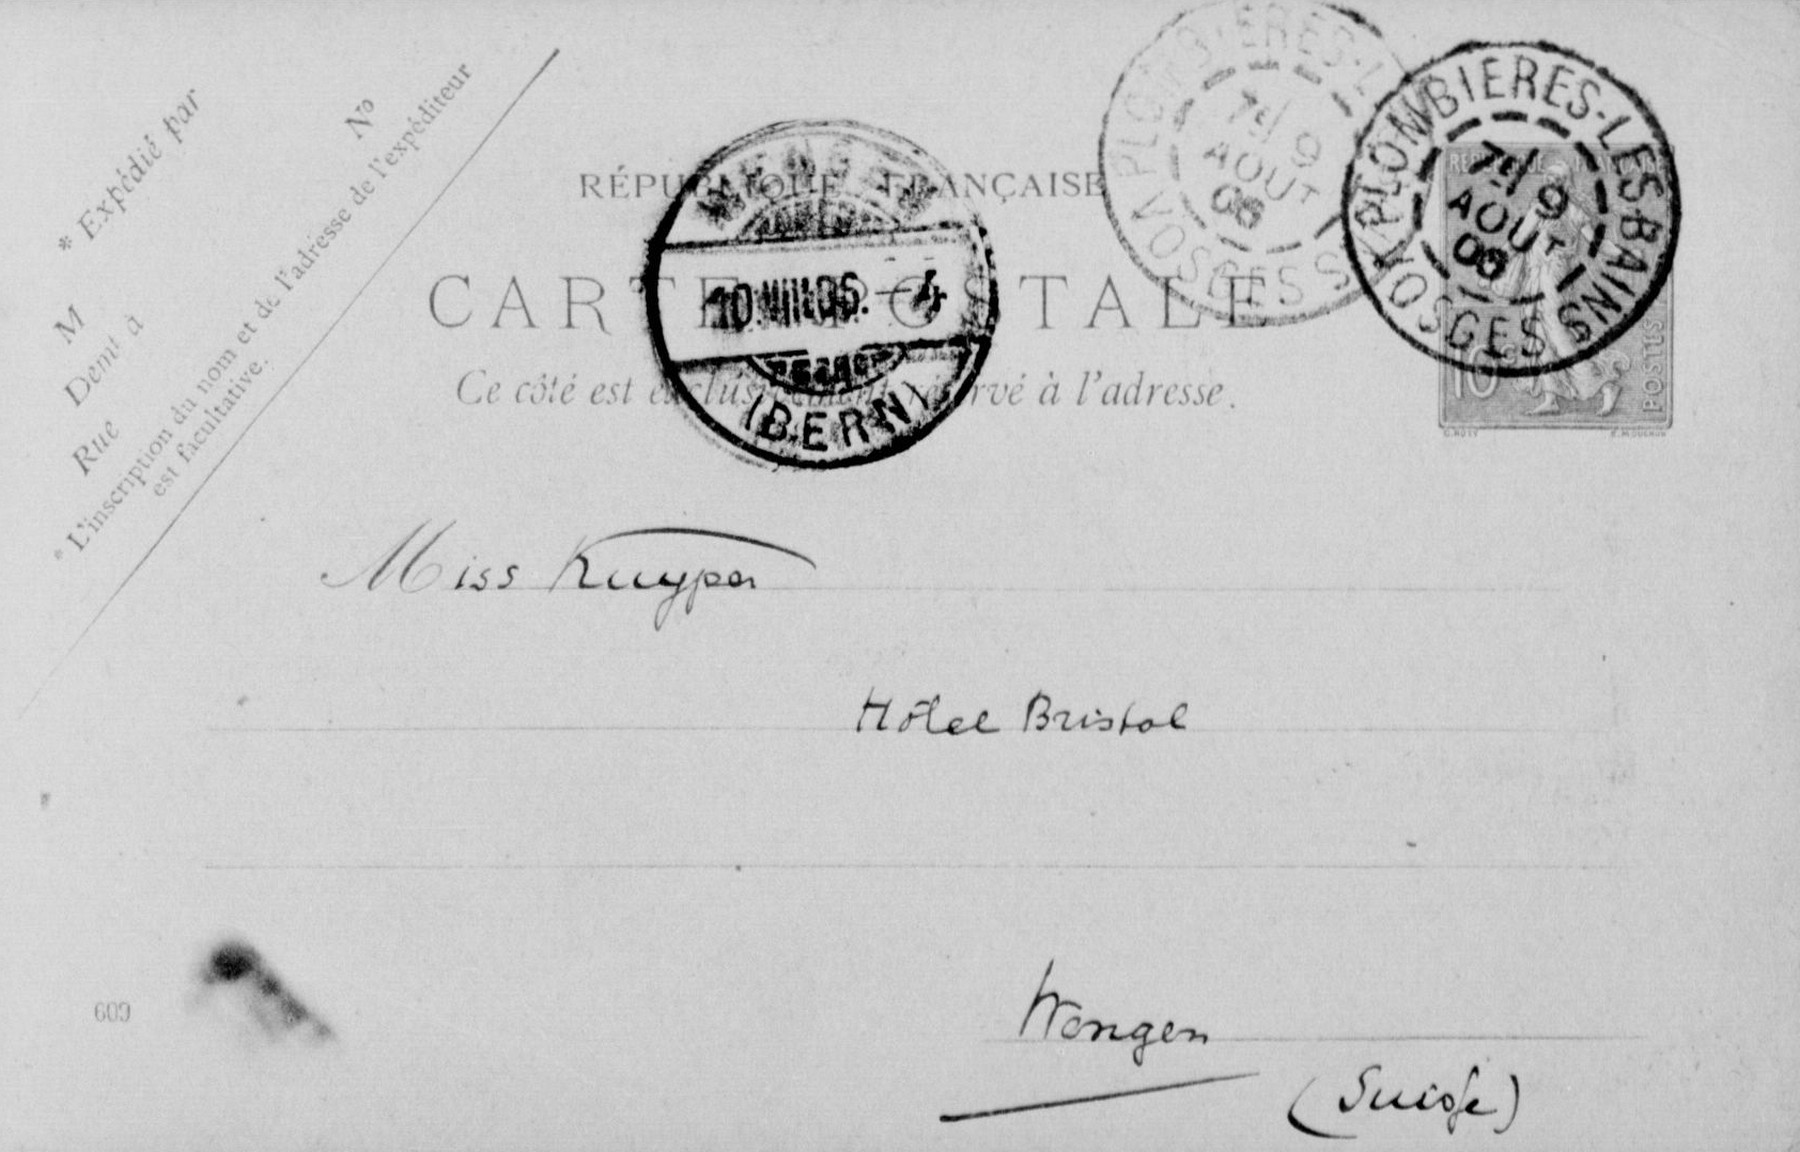 * Expédié par
No
M
Demt à
Rue
* L'inscription du nom et de l'adresse de l'expéditeur
est facultative.
RÉPUBLIQUE FRANÇAISE
CARTE POSTALE
Ce côté est exclusivement réservé à l'adresse.
WENGEN
10.VIII.06.-4
(BERN)
PLOMBIERES-LES-BAINS
9
AOUT
06
VOSGES
PLOMBIERES-LES-BAINS
9
AOUT
06
VOSGES
RÉPUBLIQUE FRANÇAISE
10c
POSTES
O. ROTY
E. MOUCHON
Miss Kuyper
Hôtel Bristol
Wengen
(Suisse)
609